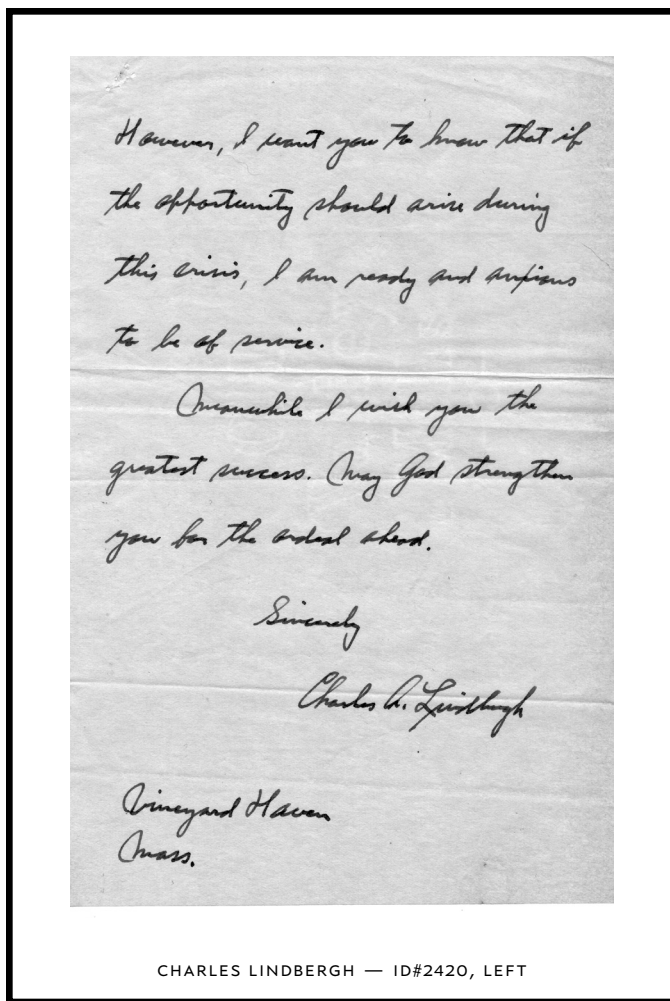 However, I want you to know that if
the opportunity should arise during
this crisis, I am ready and anxious
to be of service.
Meanwhile I wish you the
greatest success. May God strengthen
you for the ordeal ahead.
Sincerely
Charles A. Lindbergh
Vineyard Haven
Mass.
CHARLES LINDBERGH — ID#2420, LEFT